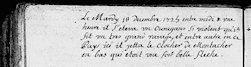 Le Mardy 18 decembre 1725 entre midi &
heure il s'eleva un Ouragan si violent qu'il
fit un tres grand ravage, et entre autre en ce
Pays ici il jetta le Clocher de
en bas qui étoit une fort belle fleche